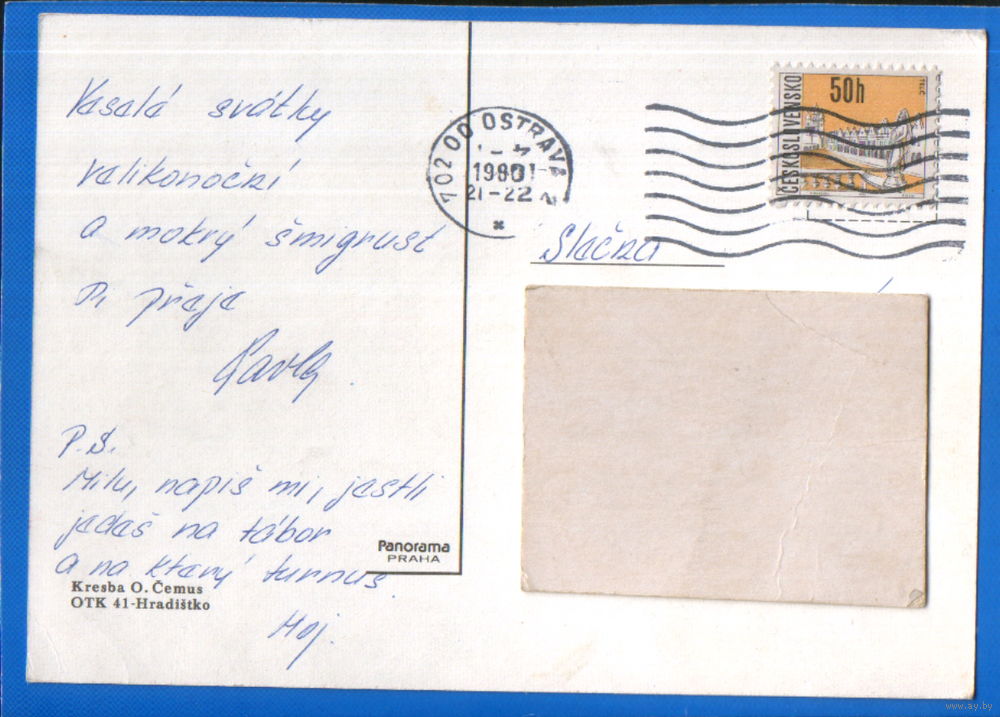 Veselé svátky
velikonoční
a mokrý šmigrust
Ti přeje
Pavla.
P.S.
Milu, napiš mi, jestli
jedeš na tábor
a na který turnus.
Hoj.
Kresba O. Čemus
OTK 41-Hradištko
Panorama
PRAHA
702 00 OSTRAVA 2
1980
21-22
ČESKOSLOVENSKO
50h
TELČ
Slečna
www.ay.by